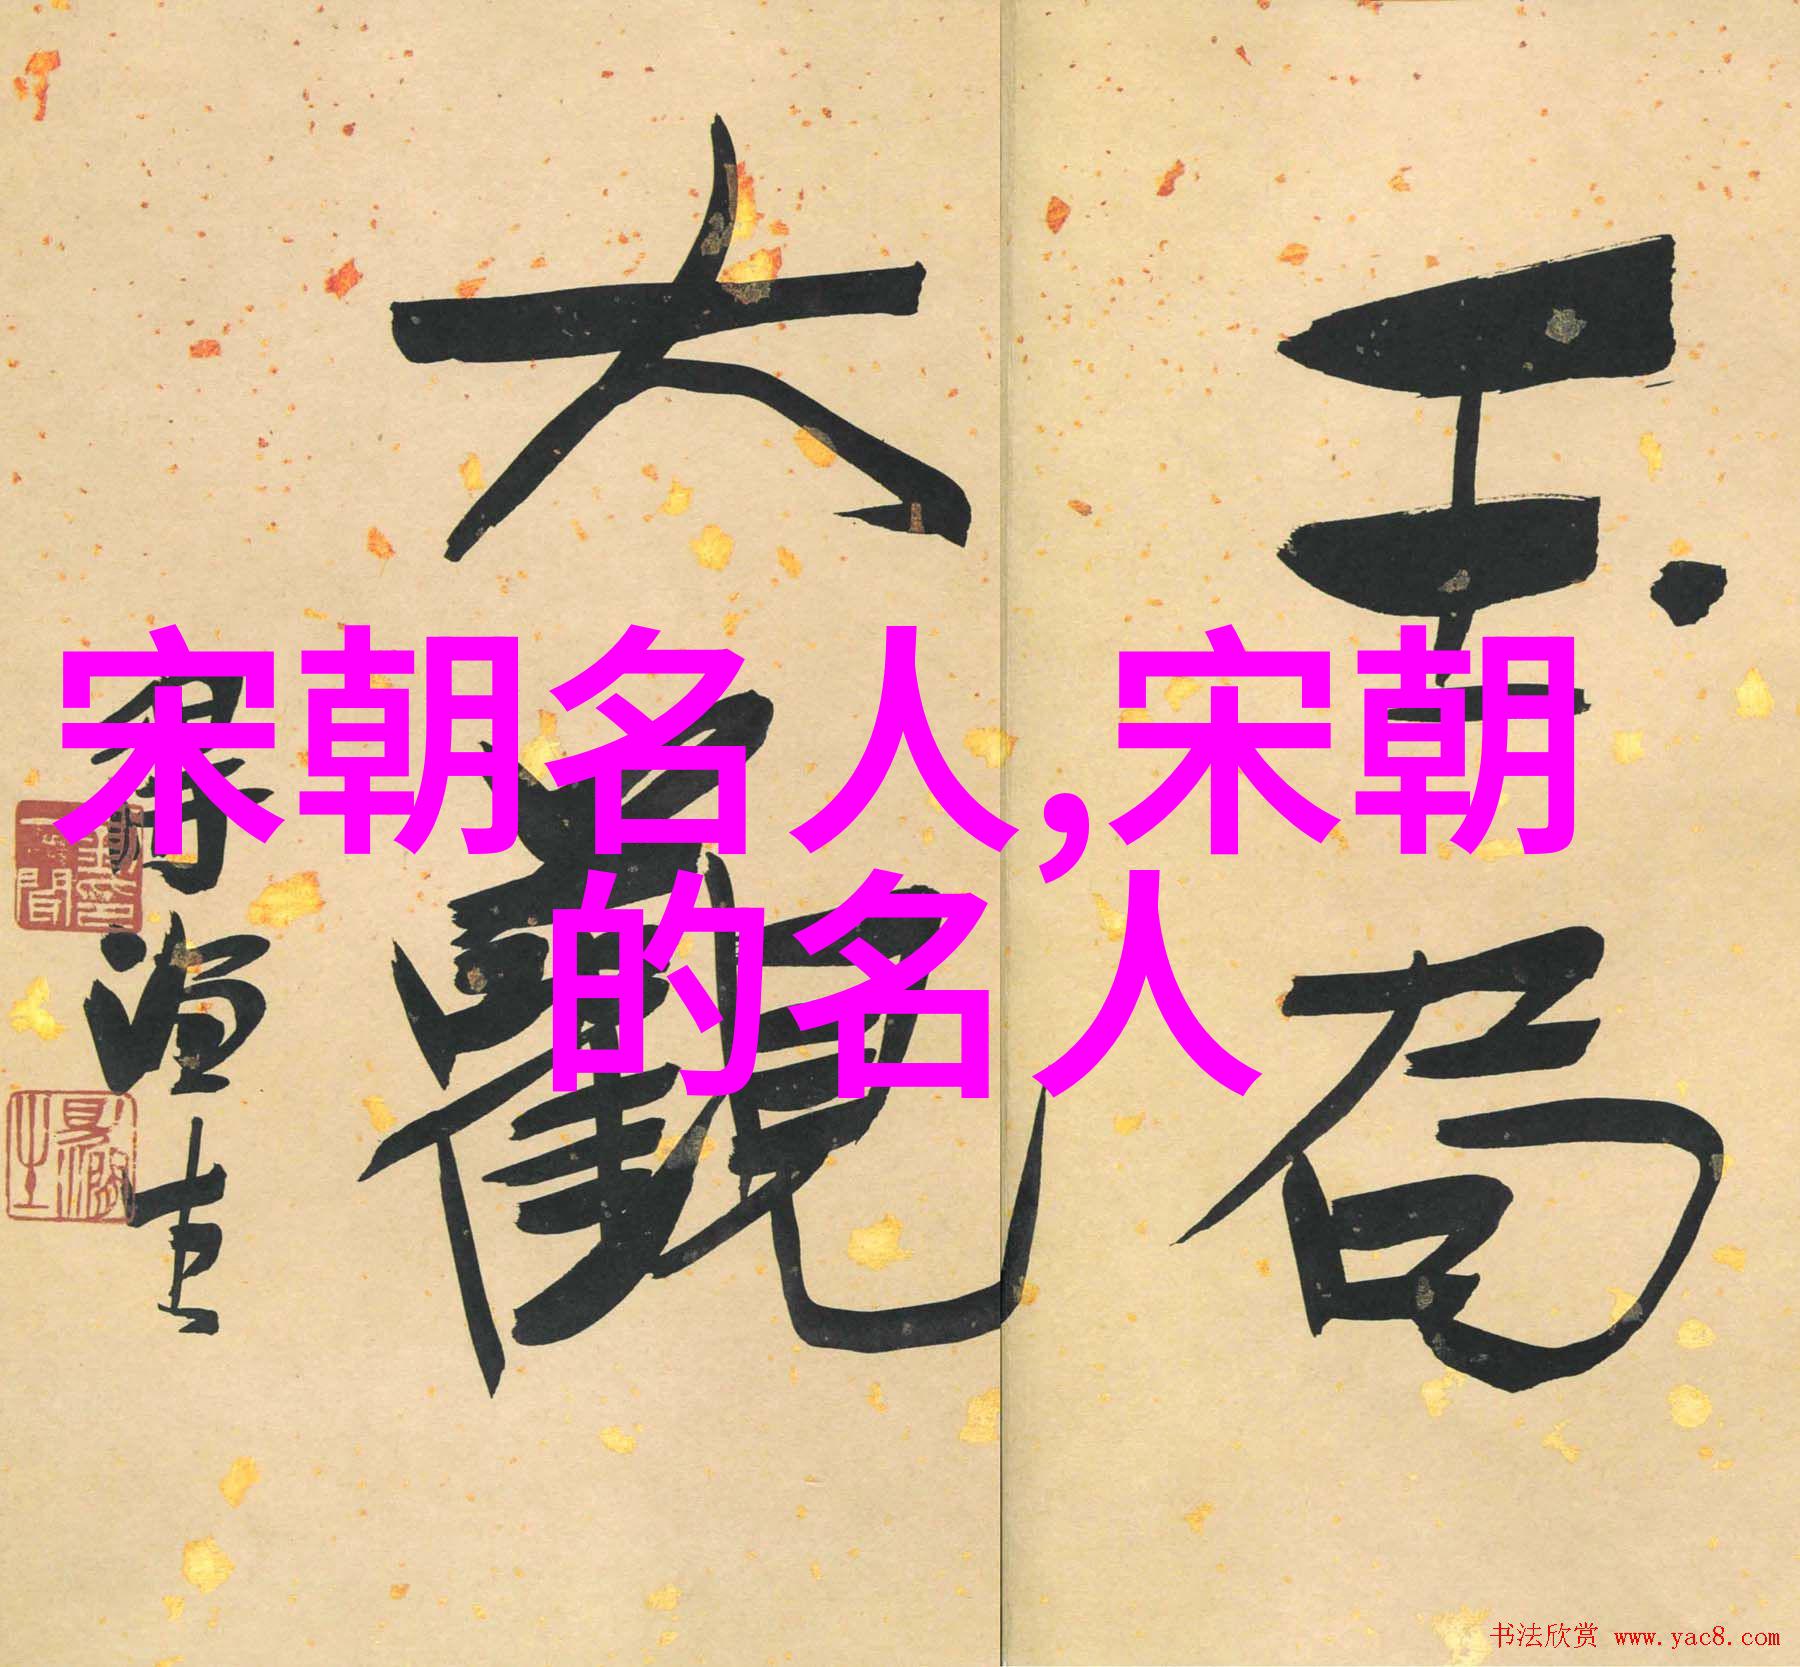 宋朝名人,宋朝
的名人
玉局
大觀
书法欣赏 www.yac8.com